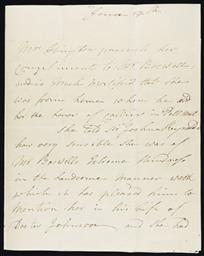 Mrs Abington presents her
Compliments to Mr Boswell
and is much mortified that she
was from home when he did
her the honor of calling in Pall Mall
She told Sir Joshua Reynolds
how very sensible she was of
Mr Boswells Extreme kindness
in the handsome manner with
which it has pleased him to
mention her in his Life of
Doctor Johnson and she had